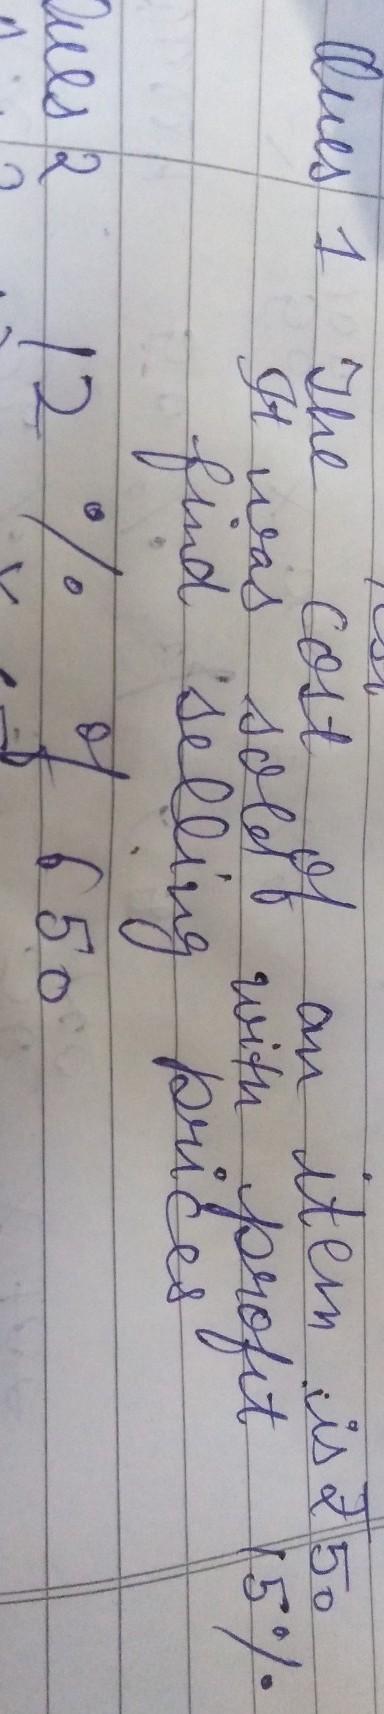 Ques 1 The cost of an item is ₹50
It was sold with profit 15%.
find selling prices
Ques 2 12 % of 650